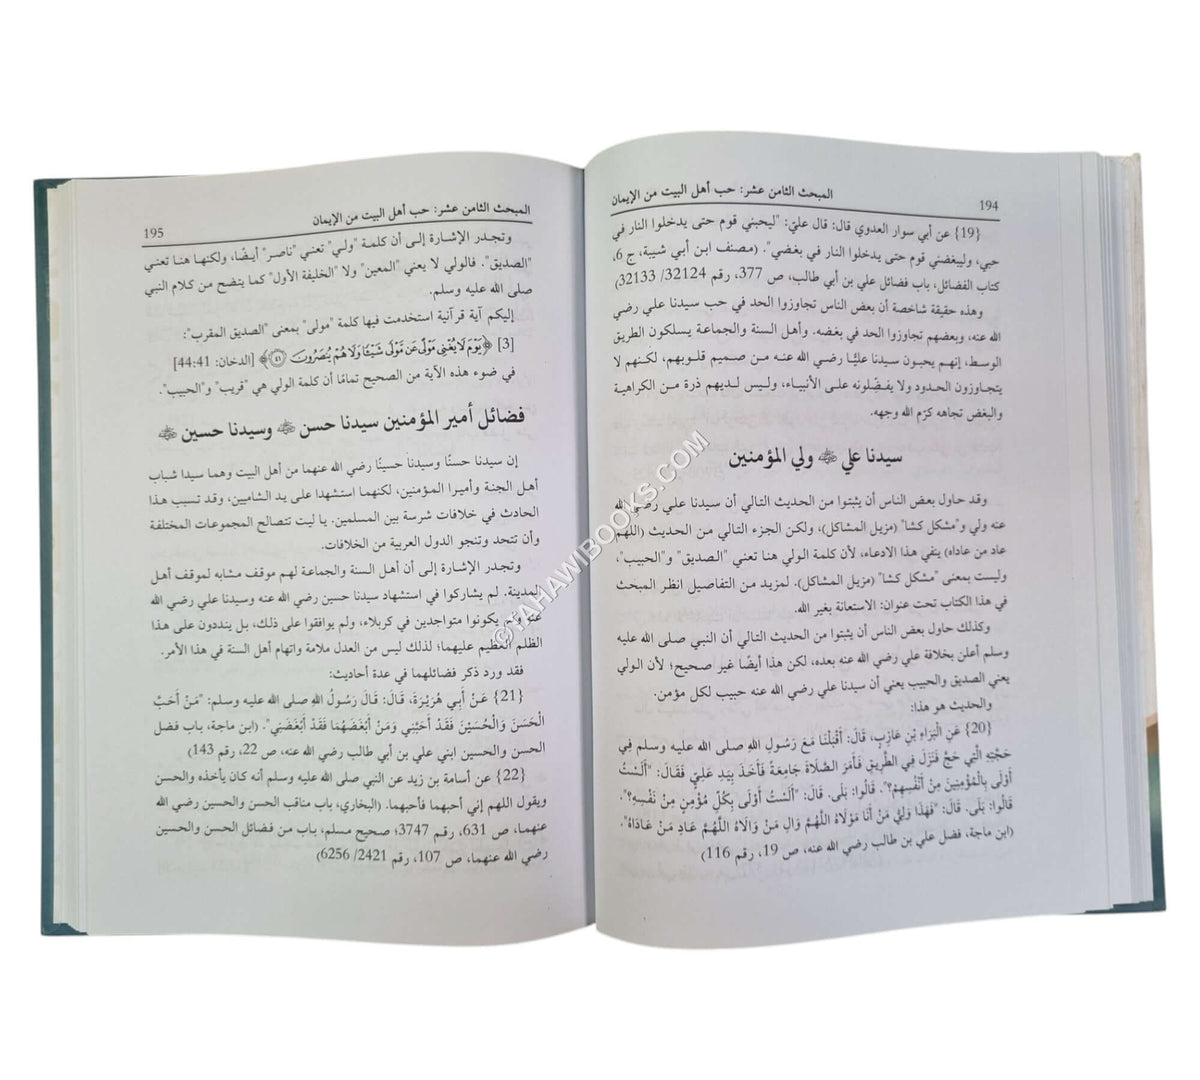 194
المبحث الثامن عشر: حب أهل البيت من الإيمان
{19} عن أبي سوار العدوي قال: قال عليّ: "ليحبني قوم حتى يدخلوا النار في
حبي، وليبغضني قوم حتى يدخلوا النار في بغضي". (مصنف ابن أبي شيبة، ج 6،
كتاب الفضائل، باب فضائل علي بن أبي طالب، ص 377، رقم 32124 /32133)
وهذه حقيقة شاخصة أن بعض الناس تجاوزوا الحد في حب سيدنا علي رضي
الله عنه، وبعضهم تجاوزوا الحد في بغضه. وأهل السنة والجماعة يسلكون الطريق
الوسط، إنهم يحبون سيدنا عليًا رضي الله عنه من صميم قلوبهم، لكنهم لا
يتجاوزون الحدود ولا يفضّلونه على الأنبياء، وليس لديهم ذرة من الكراهية
والبغض تجاهه كرّم الله وجهه.
سيدنا علي ﷺ ولي المؤمنين
وقد حاول بعض الناس أن يثبتوا من الحديث التالي أن سيدنا علي رضي الله
عنه ولي و"مشكل كشا" (مزيل المشاكل)، ولكن الجزء التالي من الحديث (اللهم
عاد من عاداه) ينفي هذا الادعاء، لأن كلمة الولي هنا تعني "الصديق" و"الحبيب"،
وليست بمعنى "مشكل كشا" (مزيل المشاكل). لمزيد من التفاصيل انظر المبحث
في هذا الكتاب تحت عنوان: الاستعانة بغير الله.
وكذلك حاول بعض الناس أن يثبتوا من الحديث التالي أن النبي صلى الله عليه
وسلم أعلن بخلافة علي رضي الله عنه بعده، لكن هذا أيضًا غير صحيح؛ لأن الولي
يعني الصديق والحبيب يعني أن سيدنا علي رضي الله عنه حبيب لكل مؤمن.
والحديث هو هذا:
{20} عَنِ الْبَرَاءِ بْنِ عَازِبٍ، قَالَ: أَقْبَلْنَا مَعَ رَسُولِ اللهِ صلى الله عليه وسلم فِي
حَجَّتِهِ الَّتِي حَجَّ فَنَزَلَ فِي الطَّرِيقِ فَأَمَرَ الصَّلاَةَ جَامِعَةً فَأَخَذَ بِيَدِ عَلِيٍّ فَقَالَ: "أَلَسْتُ
أَوْلَى بِالْمُؤْمِنِينَ مِنْ أَنْفُسِهِمْ؟". قَالُوا: بَلَى. قَالَ: "أَلَسْتُ أَوْلَى بِكُلِّ مُؤْمِنٍ مِنْ نَفْسِهِ؟".
قَالُوا: بَلَى. قَالَ: "فَهَذَا وَلِيُّ مَنْ أَنَا مَوْلَاهُ اللَّهُمَّ وَالِ مَنْ وَالَاهُ اللَّهُمَّ عَادِ مَنْ عَادَاهُ".
(ابن ماجة، فضل علي بن طالب رضي الله عنه، ص 19، رقم 116)
المبحث الثامن عشر: حب أهل البيت من الإيمان
195
وتجدر الإشارة إلى أن كلمة "ولي" تعني "ناصر" أيضًا، ولكنها هنا تعني
"الصديق". فالولي لا يعني "المعين" ولا "الخليفة الأول" كما ينضح من كلام النبي
صلى الله عليه وسلم.
إليكم آية قرآنية استخدمت فيها كلمة "مولى" بمعنى "الصديق المقرب":
[3] ﴿يَوْمَ لَا يُغْنِي مَوْلًى عَن مَّوْلًى شَيْئًا وَلَا هُمْ يُنصَرُونَ ٤١﴾ [الدخان: 44:41]
في ضوء هذه الآية من الصحيح تمامًا أن كلمة الولي هي "قريب" و"الحبيب".
فضائل أمير المؤمنين سيدنا حسن وسيدنا حسين
إن سيدنا حسنًا وسيدنا حسينًا رضي الله عنهما من أهل البيت وهما سيدا شباب
أهل الجنة وأميرا المؤمنين، لكنهما استشهدا على يد الشاميين، وقد تسبب هذا
الحادث في خلافات شرسة بين المسلمين. يا ليت تتصالح المجموعات المختلفة
وأن تتحد وتنجو الدول العربية من الخلافات.
وتجدر الإشارة إلى أن أهل السنة والجماعة لهم موقف مشابه لموقف أهل
المدينة. لم يشاركوا في استشهاد سيدنا حسين رضي الله عنه وسيدنا علي رضي الله
عنه ولم يكونوا متواجدين في كربلاء، ولم يوافقوا على ذلك، بل ينددون على هذا
الظلم العظيم عليهما؛ لذلك ليس من العدل ملامة واتهام أهل السنة في هذا الأمر.
فقد ورد ذكر فضائلهما في عدة أحاديث:
{21} عَنْ أَبِي هُرَيْرَةَ، قَالَ: قَالَ رَسُولُ اللهِ صلى الله عليه وسلم: "مَنْ أَحَبَّ
الْحَسَنَ وَالْحُسَيْنَ فَقَدْ أَحَبَّنِي وَمَنْ أَبْغَضَهُمَا فَقَدْ أَبْغَضَنِي". (ابن ماجة، باب فضل
الحسن والحسين ابني علي بن أبي طالب رضي الله عنه، ص 22، رقم 143)
{22} عن أسامة بن زيد عن النبي صلى الله عليه وسلم أنه كان يأخذه والحسن
ويقول اللهم إني أحبهما فأحبهما. (البخاري، باب مناقب الحسن والحسين رضي الله
عنهما، ص 631، رقم 3747؛ صحيح مسلم، باب من فضائل الحسن والحسين
رضي الله عنهما، ص 107، رقم 2421 /6256)
©TAHAWIBOOKS.COM